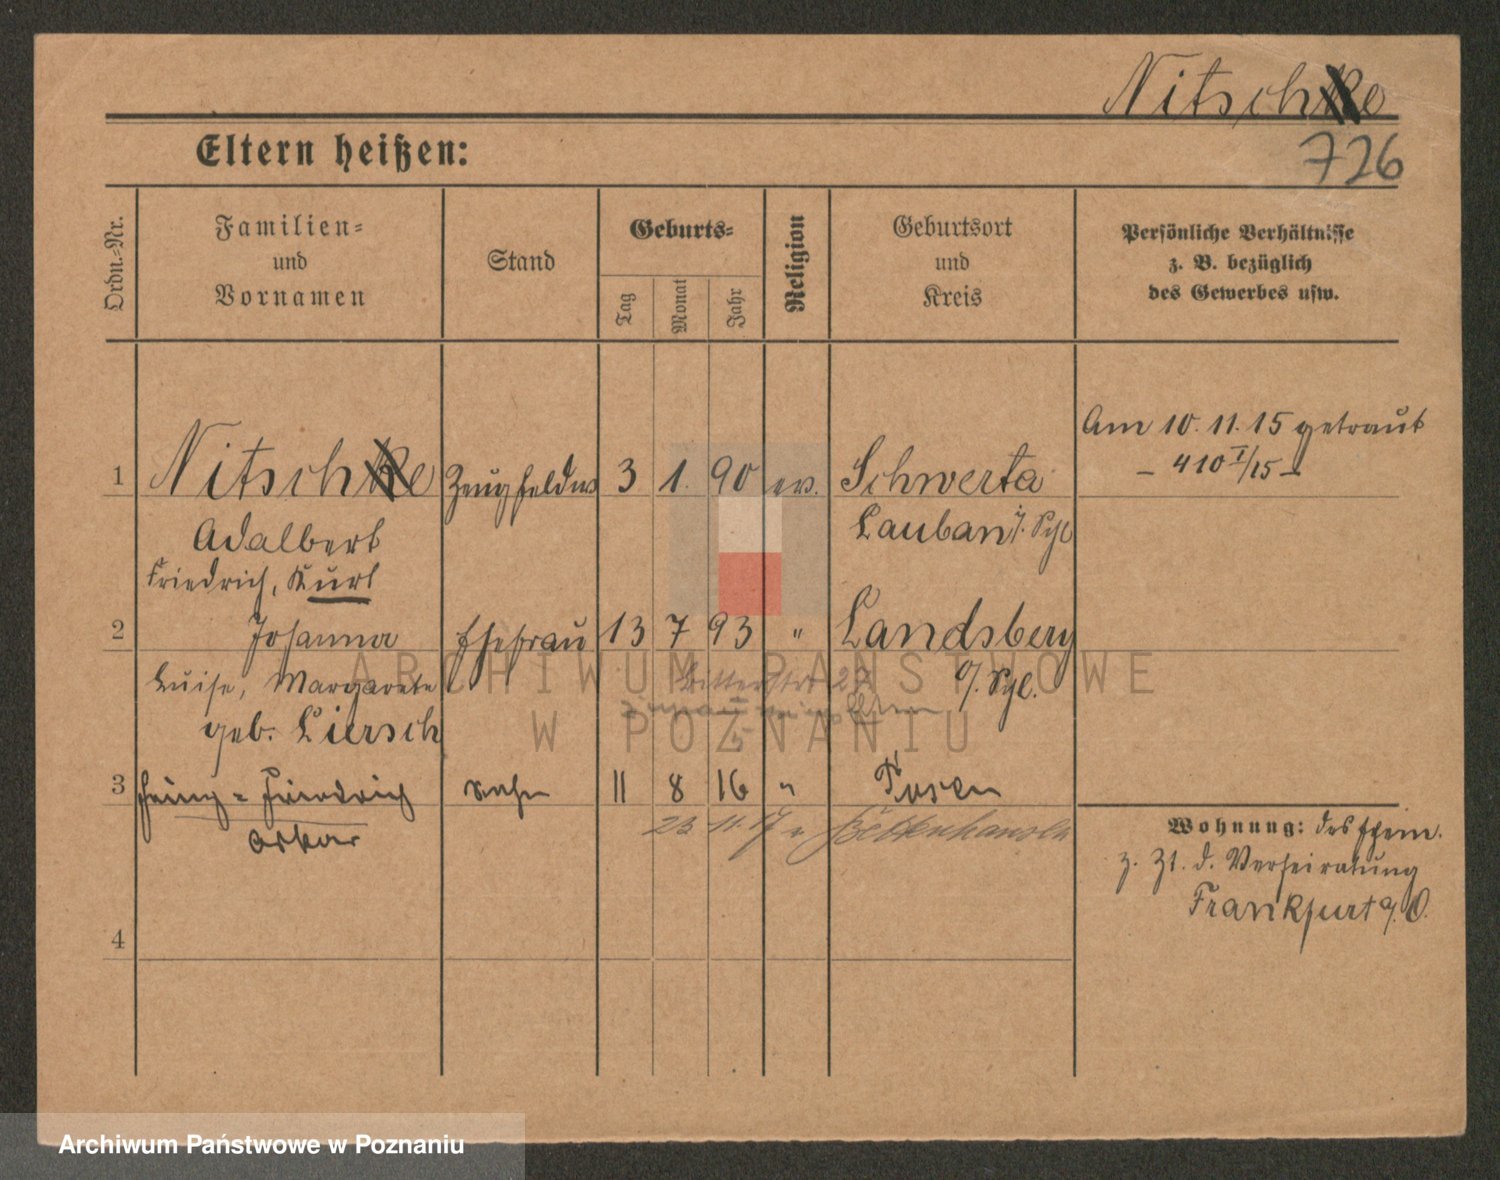 Nitschke
726
Eltern heißen:
Ordn.-Nr.
Familien-
und
Vornamen
Stand
Geburts-
Tag
Monat
Jahr
Religion
Geburtsort
und
Kreis
Persönliche Verhältnisse
z. B. bezüglich
des Gewerbes usw.
Am 10.11.15 getraut
- 410 I/15 -
1 Nitschke Zeugfeldw 3 1. 90 ev. Schwerta
Adalbert Lauban i/. Schl
Friedrich, Kurt
2 Johanna Ehefrau 13 7 93 " Landsberg
Luise, Margarete O/. Schl.
geb. Liersch
3 Heinz = Friedrich Sohn 11 8 16 " Posen
Oskar 23 11. 17
Wohnung: des Ehem.
z. Zt. d. Verheiratung
Frankfurt a/. O.
4
ARCHIWUM PAŃSTWOWE
W POZNANIU
Archiwum Państwowe w Poznaniu